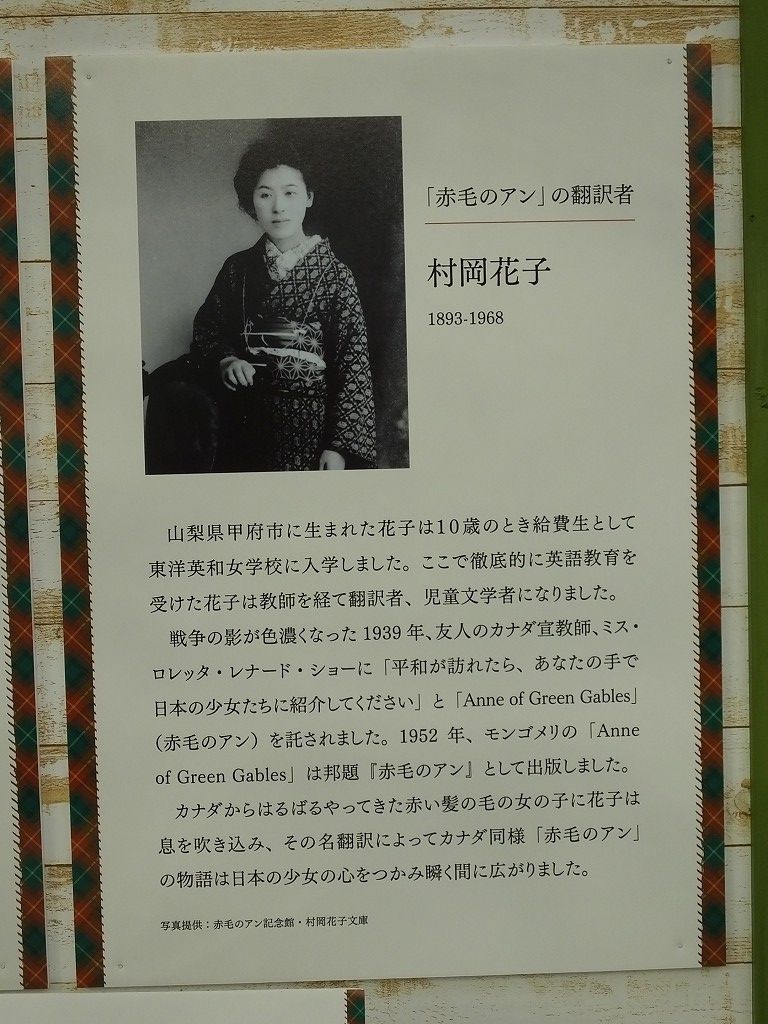 「赤毛のアン」の翻訳者
村岡花子
1893-1968
山梨県甲府市に生まれた花子は10歳のとき給費生として
東洋英和女学校に入学しました。ここで徹底的に英語教育を
受けた花子は教師を経て翻訳者、児童文学者になりました。
戦争の影が色濃くなった1939年、友人のカナダ宣教師、ミス・
ロレッタ・レナード・ショーに「平和が訪れたら、あなたの手で
日本の少女たちに紹介してください」と「Anne of Green Gables」
(赤毛のアン)を託されました。1952年、モンゴメリの「Anne
of Green Gables」は邦題『赤毛のアン』として出版しました。
カナダからはるばるやってきた赤い髪の毛の女の子に花子は
息を吹き込み、その名翻訳によってカナダ同様「赤毛のアン」
の物語は日本の少女の心をつかみ瞬く間に広がりました。
写真提供:赤毛のアン記念館・村岡花子文庫